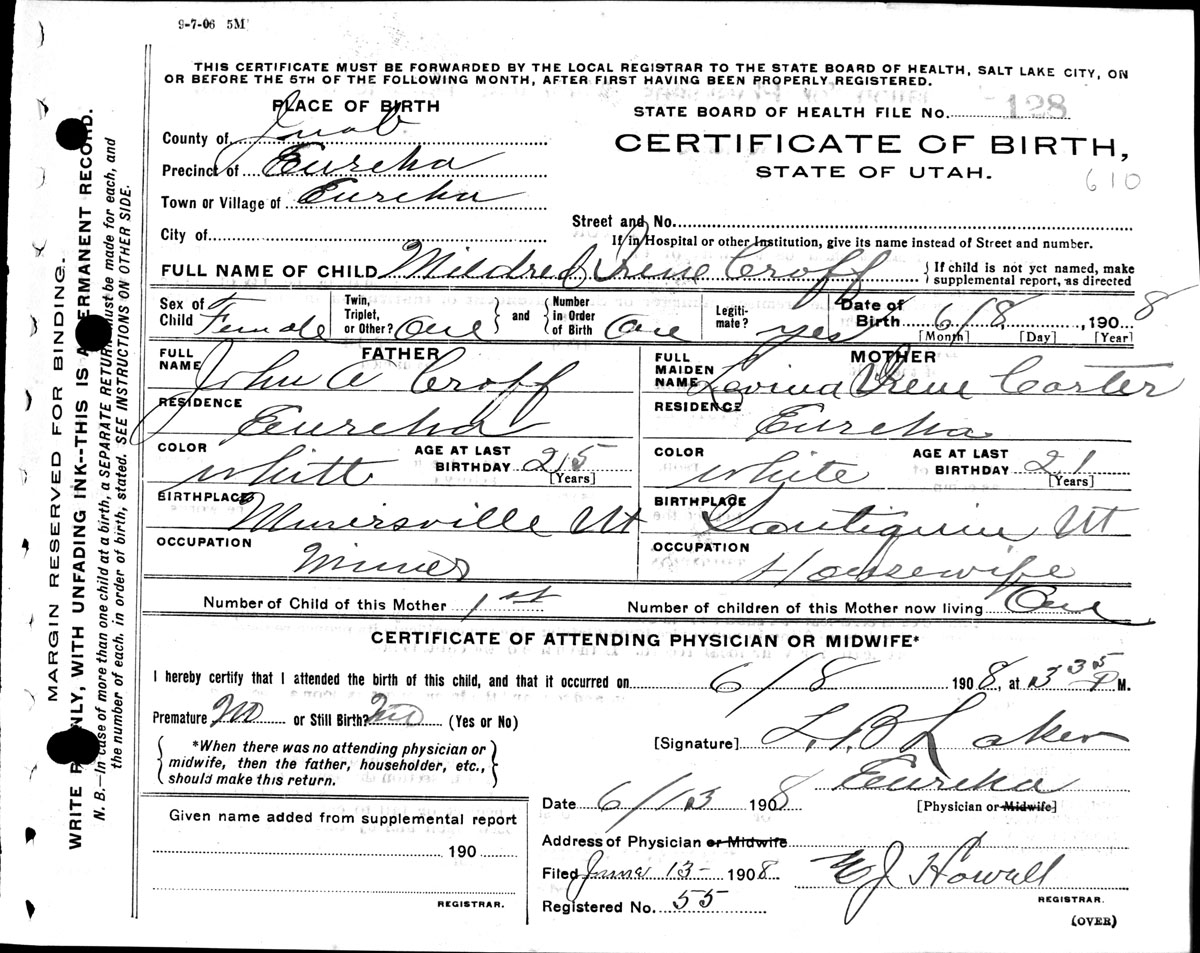 9-7-06 5M
THIS CERTIFICATE MUST BE FORWARDED BY THE LOCAL REGISTRAR TO THE STATE BOARD OF HEALTH, SALT LAKE CITY, ON
OR BEFORE THE 5TH OF THE FOLLOWING MONTH, AFTER FIRST HAVING BEEN PROPERLY REGISTERED.
PLACE OF BIRTH
STATE BOARD OF HEALTH FILE No. 128
County of Juab
CERTIFICATE OF BIRTH,
Precinct of Eureka
STATE OF UTAH.
610
Town or Village of Eureka
Street and No.
City of
If in Hospital or other Institution, give its name instead of Street and number.
FULL NAME OF CHILD Mildred Irene Croff { If child is not yet named, make
supplemental report, as directed
Sex of Child Female Twin, Triplet, or Other? One } and { Number in Order of Birth One Legiti-mate? yes Date of Birth 6/8, 1908
[Month] [Day] [Year]
FATHER
MOTHER
FULL NAME John A Croff
FULL MAIDEN NAME Lovina Irene Carter
RESIDENCE Eureka
RESIDENCE Eureka
COLOR Whitt AGE AT LAST BIRTHDAY 25 [Years]
COLOR White AGE AT LAST BIRTHDAY 21 [Years]
BIRTHPLACE Minersville Ut
BIRTHPLACE Santiquin Ut
OCCUPATION Miner
OCCUPATION Housewife
Number of Child of this Mother 1st Number of children of this Mother now living One
CERTIFICATE OF ATTENDING PHYSICIAN OR MIDWIFE*
I hereby certify that I attended the birth of this child, and that it occurred on 6/8 1908, at 3 35 P M.
Premature No or Still Birth? No (Yes or No)
{ *When there was no attending physician or
midwife, then the father, householder, etc.,
should make this return. }
[Signature] L.B. Laker
Eureka
Date 6/13 1908 [Physician or Midwife]
Given name added from supplemental report
190
REGISTRAR.
Address of Physician or Midwife
Filed June 13- 1908 E J Howell
REGISTRAR.
Registered No. 55
(OVER)
MARGIN RESERVED FOR BINDING.
WRITE PLAINLY, WITH UNFADING INK--THIS IS A PERMANENT RECORD.
N. B.—In case of more than one child at a birth, a SEPARATE RETURN must be made for each, and
the number of each, in order of birth, stated. SEE INSTRUCTIONS ON OTHER SIDE.